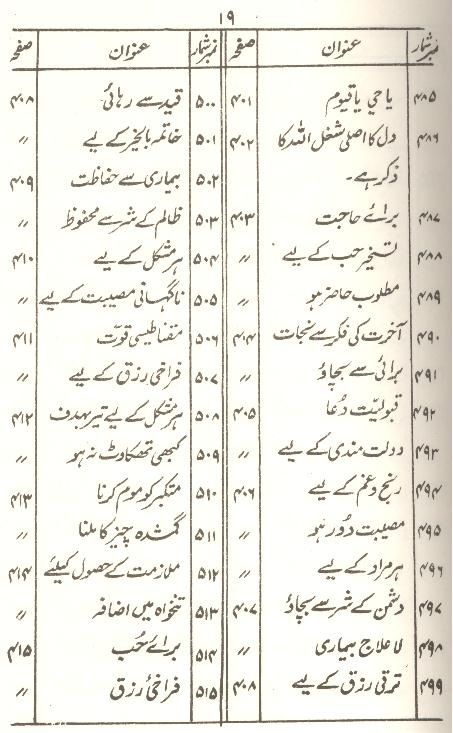 ۱۹
نمبر شمار عنوان صفحہ
۴۸۵ یا حی یا قیوم ۴۰۱
۴۸۶ دل کا اصلی شغل اللہ کا ۴۰۲
ذکر ہے۔
۴۸۷ برائے حاجت ۴۰۳
۴۸۸ تسخیر حب کے لیے "
۴۸۹ مطلوب حاضر ہو "
۴۹۰ آخرت کی فکر سے نجات ۴۰۴
۴۹۱ برائی سے بچاؤ "
۴۹۲ قبولیّت دُعا ۴۰۵
۴۹۳ دولت مندی کے لیے "
۴۹۴ رنج و غم کے لیے ۴۰۶
۴۹۵ مصیبت دُور ہو "
۴۹۶ ہر مراد کے لیے "
۴۹۷ دشمن کے شر سے بچاؤ ۴۰۷
۴۹۸ لا علاج بیماری "
۴۹۹ ترقی رزق کے لیے ۴۰۸
نمبر شمار عنوان صفحہ
۵۰۰ قید سے رہائی ۴۰۸
۵۰۱ خاتمہ بالخیر کے لیے "
۵۰۲ بیماری سے حفاظت ۴۰۹
۵۰۳ ظالم کے شر سے محفوظ "
۵۰۴ ہر مشکل کے لیے ۴۱۰
۵۰۵ ناگہانی مصیبت کے لیے "
۵۰۶ مقناطیسی قوّت ۴۱۱
۵۰۷ فراخی رزق کے لیے "
۵۰۸ ہر مشکل کے لیے تیر بہدف ۴۱۲
۵۰۹ کبھی تھکاوٹ نہ ہو "
۵۱۰ متکبر کو موم کرنا ۴۱۳
۵۱۱ گمشدہ چیز کا ملنا "
۵۱۲ ملازمت کے حصول کیلئے ۴۱۴
۵۱۳ تنخواہ میں اضافہ "
۵۱۴ برائے حُب ۴۱۵
۵۱۵ فراخئ رزق "